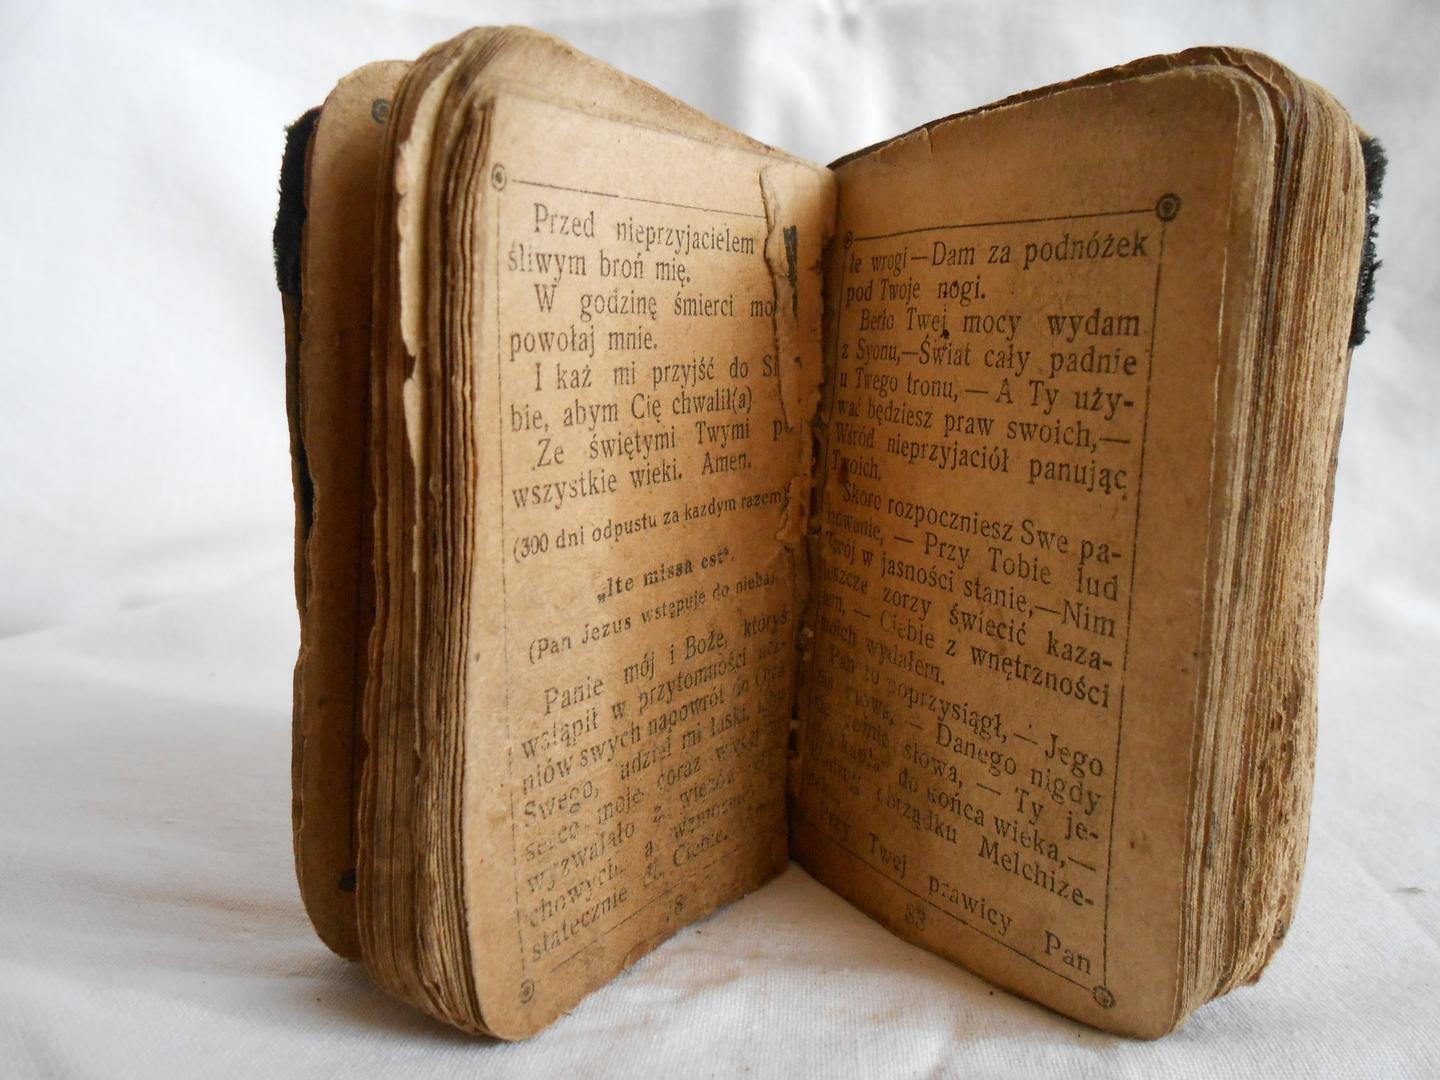 Przed nieprzyjacielem
śliwym broń mię.
W godzinę śmierci mo
powołaj mnie.
I każ mi przyjść do Si
bie, abym Cię chwalił(a)
Ze świętymi Twymi p
wszystkie wieki. Amen.
(300 dni odpustu za każdym razem)
„Ite missa est“.
(Pan Jezus wstępuje do nieba).
Panie mój i Boże, któryś
wstąpił w przytomności ucz-
niów swych napowrót do Ojca
Swego, udziel mi łaski, aby
serce moje coraz więcej
wyzwalało z więzów
chowych, a wzmocnio
statecznie do Ciebie.
78
le wrogi—Dam za podnóżek
pod Twoje nogi.
Berło Twej mocy wydam
z Syonu,—Świat cały padnie
u Twego tronu, — A Ty uży-
wać będziesz praw swoich,—
Wśród nieprzyjaciół panując
Twoich.
Skoro rozpoczniesz Swe pa-
nowanie, — Przy Tobie lud
Twój w jasności stanie,—Nim
jeszcze zorzy świecić kaza-
łem, — Ciebie z wnętrzności
moich wydałem.
Pan to poprzysiągł, — Jego
słowa, — Danego nigdy
nie zmieni słowa, — Ty je-
steś kapłan do końca wieka,—
Według obrządku Melchize-
Przy Twej prawicy Pan
83